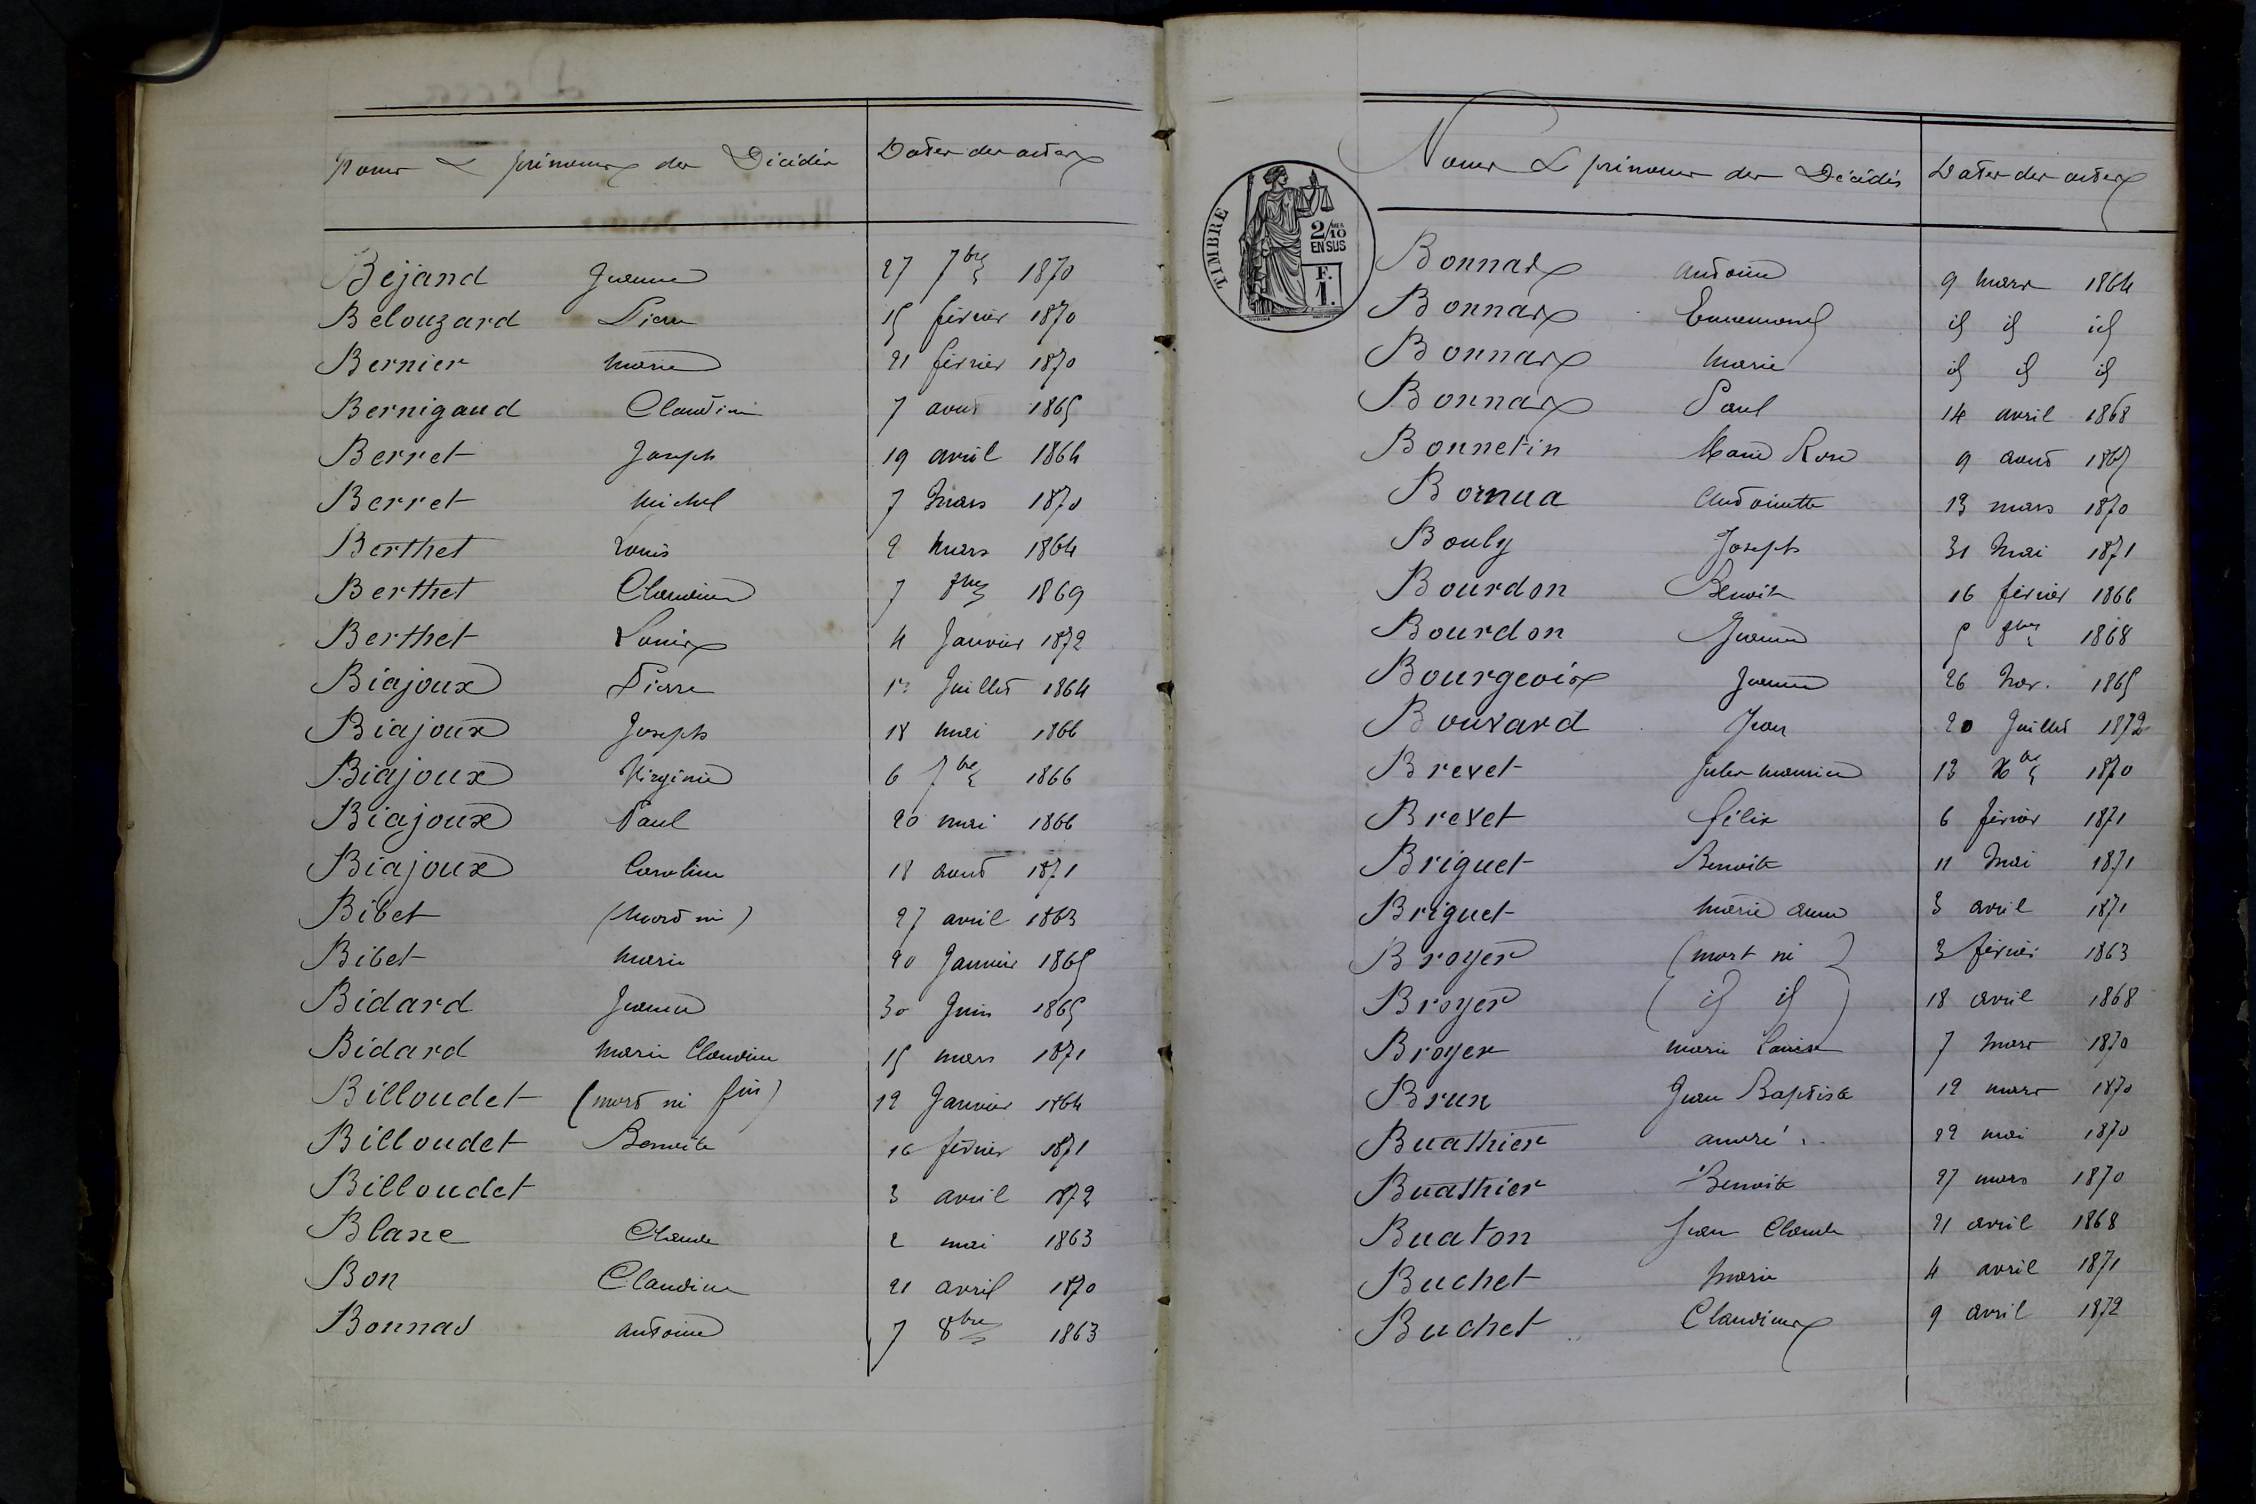 Noms & prénoms des Décédés Dates des actes
Bejand Jeanne 27 7bre 1870
Belouzard Pierre 15 février 1870
Bernier Marie 21 février 1870
Bernigaud Claudine 7 août 1865
Berret Joseph 19 avril 1864
Berret Michel 7 Mars 1870
Berthet Louis 2 Mars 1864
Berthet Claudine 7 8bre 1869
Berthet Louis 4 Janvier 1872
Biajoux Pierre Juillet 1864
Biajoux Joseph 18 mai 1866
Biajoux Virginie 6 7bre 1866
Biajoux Paul 20 mai 1866
Biajoux Caroline 18 août 1871
Bibet (Mort né) 27 avril 1863
Bibet Marie 20 Janvier 1865
Bidard Jeanne 30 Juin 1865
Bidard Marie Claudine 15 mars 1871
Billoudet (mort né) 12 Janvier 1864
Billoudet Benoite 16 février 1871
Billoudet 3 avril 1872
Blanc Claude 2 mai 1863
Bon Claudine 21 avril 1870
Bonnas antoine 7 8bre 1863
Noms & prénoms des Décédés Dates des actes
TIMBRE
2/10
EN SUS
F.
1.
Bonnas antoine 9 mars 1864
Bonnas Ennemond id id id
Bonnas Marie id id id
Bonnas Paul 14 avril 1868
Bonnetin Marie Rose 9 août 1867
Bornua Antoinette 13 mars 1870
Bouly Joseph 31 Mai 1871
Bourdon Benoit 16 février 1866
Bourdon Jeanne 5 8bre 1868
Bourgeois Jeanne 26 Nov. 1865
Bouvard Jean 20 Juillet 1872
Brevet Jules Maurice 13 Xbre 1870
Brevet félix 6 février 1871
Briguet Benoite 11 Mai 1871
Briguet Marie anne 3 avril 1871
Broyer (mort né) 3 février 1863
Broyer (id id) 18 avril 1868
Broyer Marie Louise 7 Mars 1870
Brun Jean Baptiste 12 mars 1870
Buathier André 22 mai 1870
Buathier Benoite 27 mars 1870
Buaton Jean Claude 21 avril 1868
Buchet Marie 4 avril 1871
Buchet Claudine 9 avril 1872